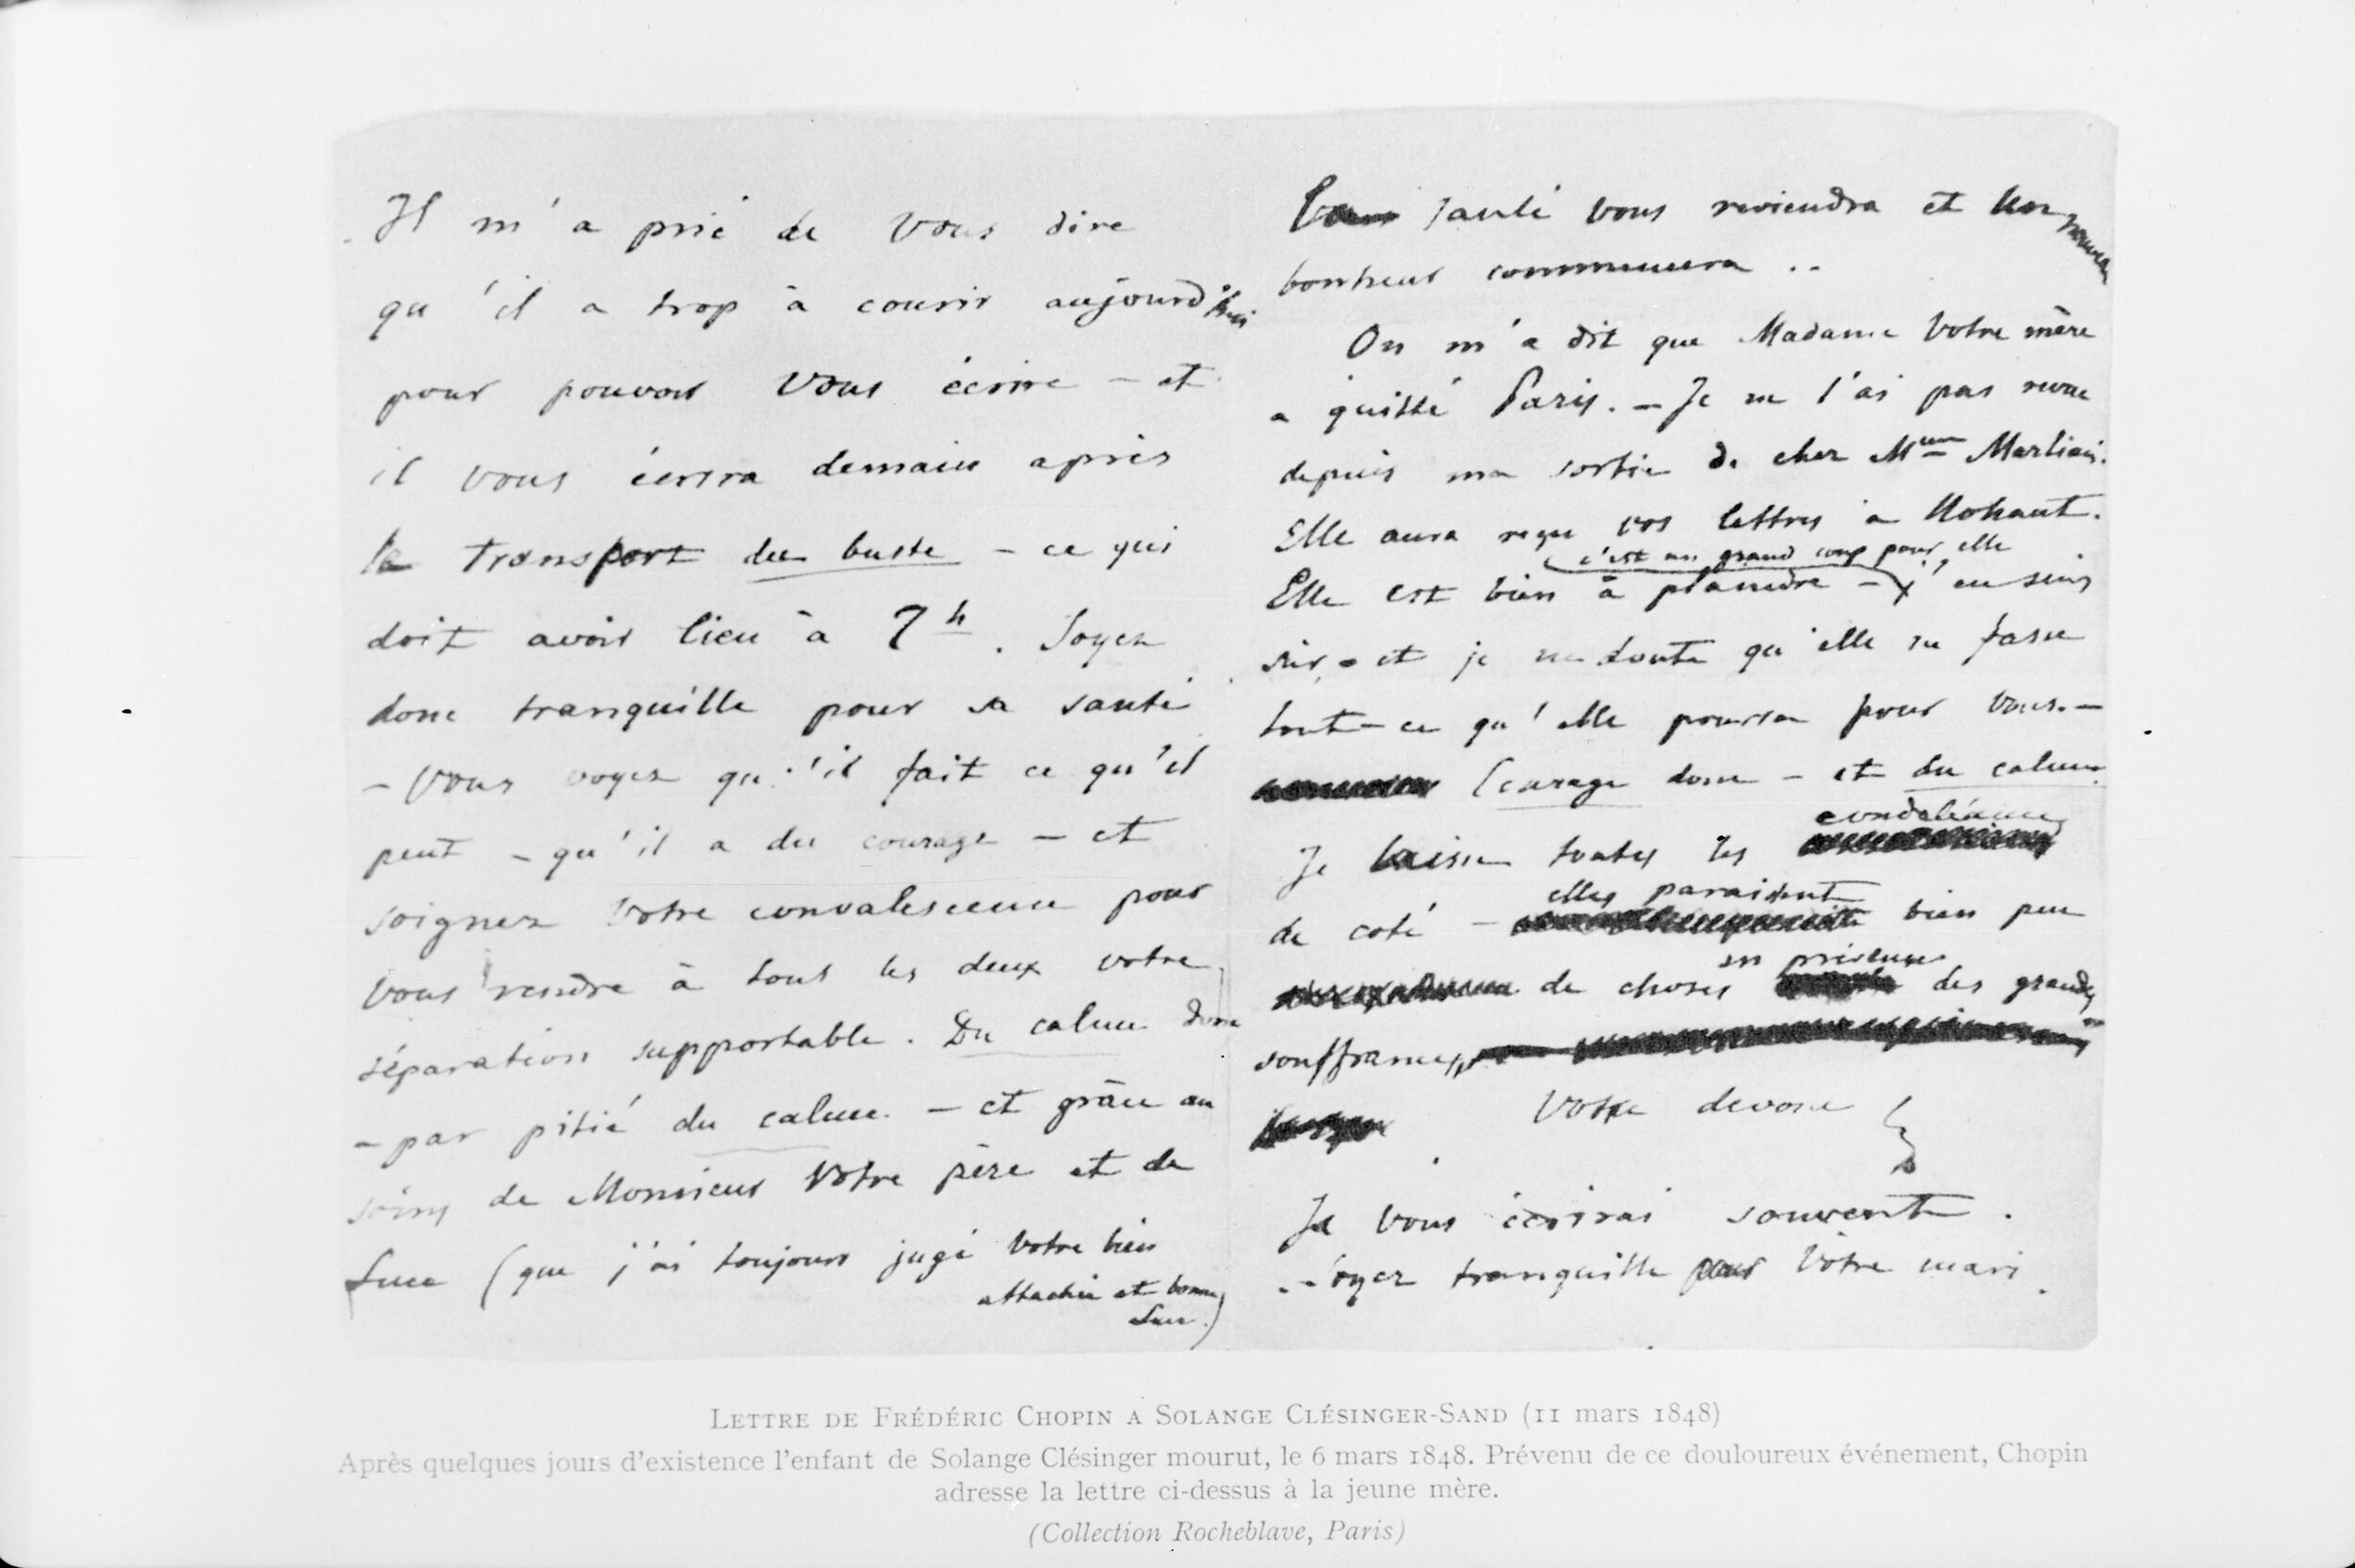 Il m'a prié de vous dire
qu'il a trop à courir aujourd'hui
pour pouvoir vous écrire – et
il vous écrira demain après
le transport du buste – ce qui
doit avoir lieu à 7h. Soyez
donc tranquille pour sa santé
– Vous voyez qu'il fait ce qu'il
peut – qu'il a du courage – et
soignez votre convalescence pour
vous rendre à tous les deux votre
séparation supportable. Du calme donc
– par pitié du calme – et grâce au
soins de Monsieur votre père et de
Luce (que j'ai toujours jugé votre bien
attachée et bonne
Luce.)
santé vous reviendra et un nouveau
bonheur commencera ..
On m'a dit que Madame votre mère
a quitté Paris. – Je ne l'ai pas revue
depuis ma sortie de chez Mme Marliani.
Elle aura reçu vos lettres à Nohant.
c'est un grand coup pour elle
Elle est bien à plaindre – j'en suis
sûr – et je ne doute qu'elle ne fasse
tout – ce qu'elle pourra pour vous. –
Courage donc – et du calme.
condoléances
Je laisse toutes les
elles paraissent
de coté – bien peu
en présence
de choses des grandes
souffrances
Votre devoué
Je vous écrirai souvent.
Soyez tranquille pour votre mari.
LETTRE DE FRÉDÉRIC CHOPIN A SOLANGE CLÉSINGER-SAND (11 mars 1848)
Après quelques jours d'existence l'enfant de Solange Clésinger mourut, le 6 mars 1848. Prévenu de ce douloureux événement, Chopin
adresse la lettre ci-dessus à la jeune mère.
(Collection Rocheblave, Paris)